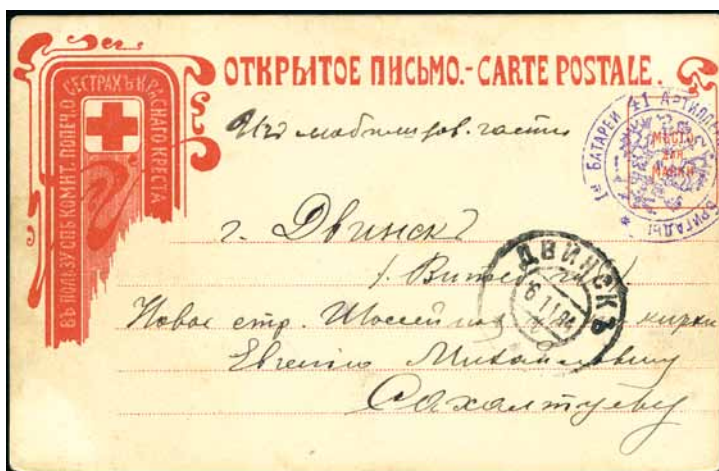 ОТКРЫТОЕ ПИСЬМО.-CARTE POSTALE.
ВЪ ПОЛЬЗУ СПБ КОМИТ. ПОПЕЧ. О СЕСТРАХЪ КРАСНАГО КРЕСТА
Изъ мобилизов. части
1й БАТАРЕИ 41 АРТИЛЛЕ БРИГАДЫ *
МѢСТО
ДЛЯ
МАРКИ
г. Двинскъ
ДВИНСКЪ
Новое стр. кирки
Евгению Михайловичу
Сахалтуеву